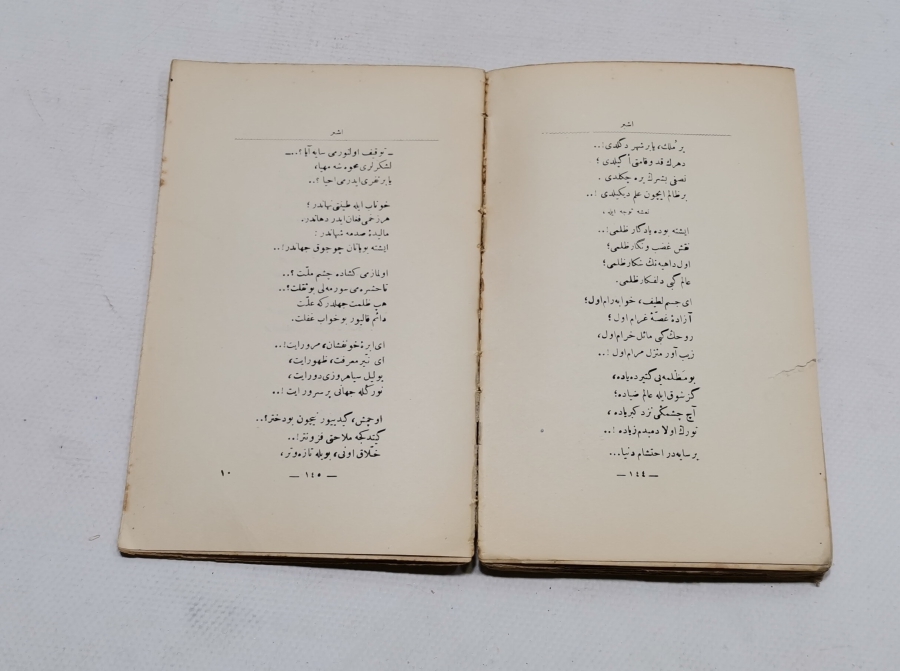 اشعر
بر ملك، يا بر شهر دكلدى!..
دهرك قد و قامتى اكيلدى؛
نصفى بشرك يره چكلدى.
بر ظالم ايچون علم ديكيلدى!..
نعشه توجه ايله،
ايشته بوده يادكار ظلمى!..
نقش غصب و نكار ظلمى؛
اول داهيه نك شكار ظلمى؛
عالم كبى دلفكار ظلمى.
اى جسم لطيف، خوابه رام اول؛
آزادهٔ غصهٔ غرام اول؛
روحك كبى مائل خرام اول،
زيب آور منزل مرام اول!..
بو مظلمه يى كتير ده ياده،
كز شوق ايله عالم ضياده؛
آچ چشمكى نزد كبرياده،
نورك اولا دمبدم زياده!..
بر سايه در احتشام دنيا...
— ١٤٤ —
اشعر
ـ توقيف اولنورمى سايه آيا؟..ـ
لشكرلرى محوه شه مهيا،
يا بر نفرى ايدرمى احيا؟..
خوناب ايله طبلتى نهاندر؛
هر زخمى فغان ايدر دهاندر.
ماليدهٔ صدمهٔ شهاندر:
ايشته بو ياتان چوجوق جهاندر!..
اولمازمى كشاده چشم ملت؟..
تا حشره مى سورمه لى بو ذلت؟..
هپ ظلمت جهلدر كه علت
دائم قاليور بو خواب غفلت.
اى ابرهٔ خونفشان، مرور ايت!..
اى نير معرفت، ظهور ايت،
بو ليل سياهروزى دور ايت،
نوركله جهانى پر سرور ايت!..
اوچمش، كيديور نيچون بو دختر؟..
كيتدكجه ملاحتى فزونتر!..
خلاق اونى، بويله تازه و تر،
— ١٤٥ —
١٠